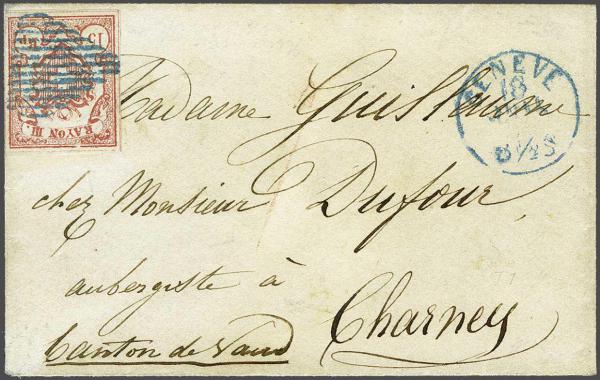 15 Rp.
RAYON III
GENÈVE
18
5 1/2 S
Madame Guillaume
chez Monsieur Dufour
aubergiste à
Charney
Canton de Vaud